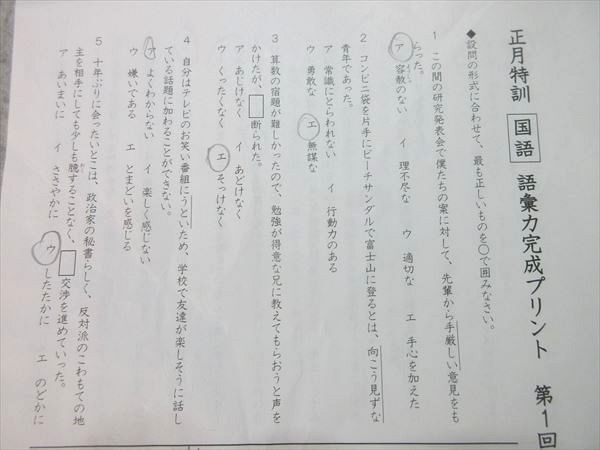 正月特訓 国語 語彙力完成プリント 第1回
◆設問の形式に合わせて、最も正しいものを○で囲みなさい。
1 この間の研究発表会で僕たちの案に対して、先輩から手厳しい意見をも
らった。
ア 容赦のない イ 理不尽な ウ 適切な エ 手心を加えた
2 コンビニ袋を片手にビーチサンダルで富士山に登るとは、向こう見ずな
青年であった。
ア 常識にとらわれない イ 行動力のある
ウ 勇敢な エ 無謀な
3 算数の宿題が難しかったので、勉強が得意な兄に教えてもらおうと声を
かけたが、□断られた。
ア あじけなく イ あどけなく
ウ くったくなく エ そっけなく
4 自分はテレビのお笑い番組にうといため、学校で友達が楽しそうに話し
ている話題に加わることができない。
ア よくわからない イ 楽しく感じない
ウ 嫌いである エ とまどいを感じる
5 十年ぶりに会ったいとこは、政治家の秘書らしく、反対派のこわもての地
主を相手にしても少しも臆することなく、□交渉を進めていった。
ア あいまいに イ ささやかに ウ したたかに エ のどかに